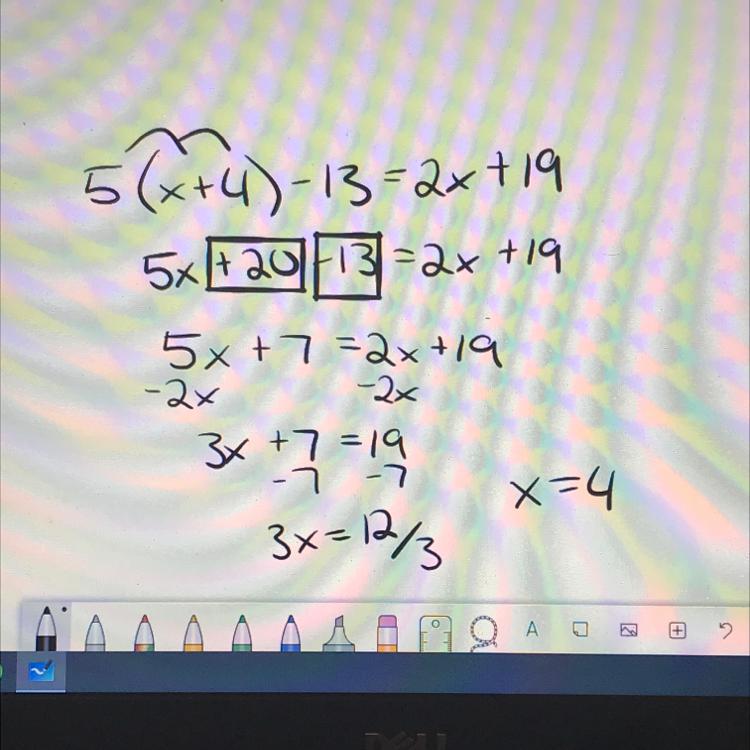 5(x+4)-13=2x+19
5x+20-13=2x+19
5x+7=2x+19
-2x -2x
3x+7=19
-7 -7
x=4
3x=12/3
A
DELL